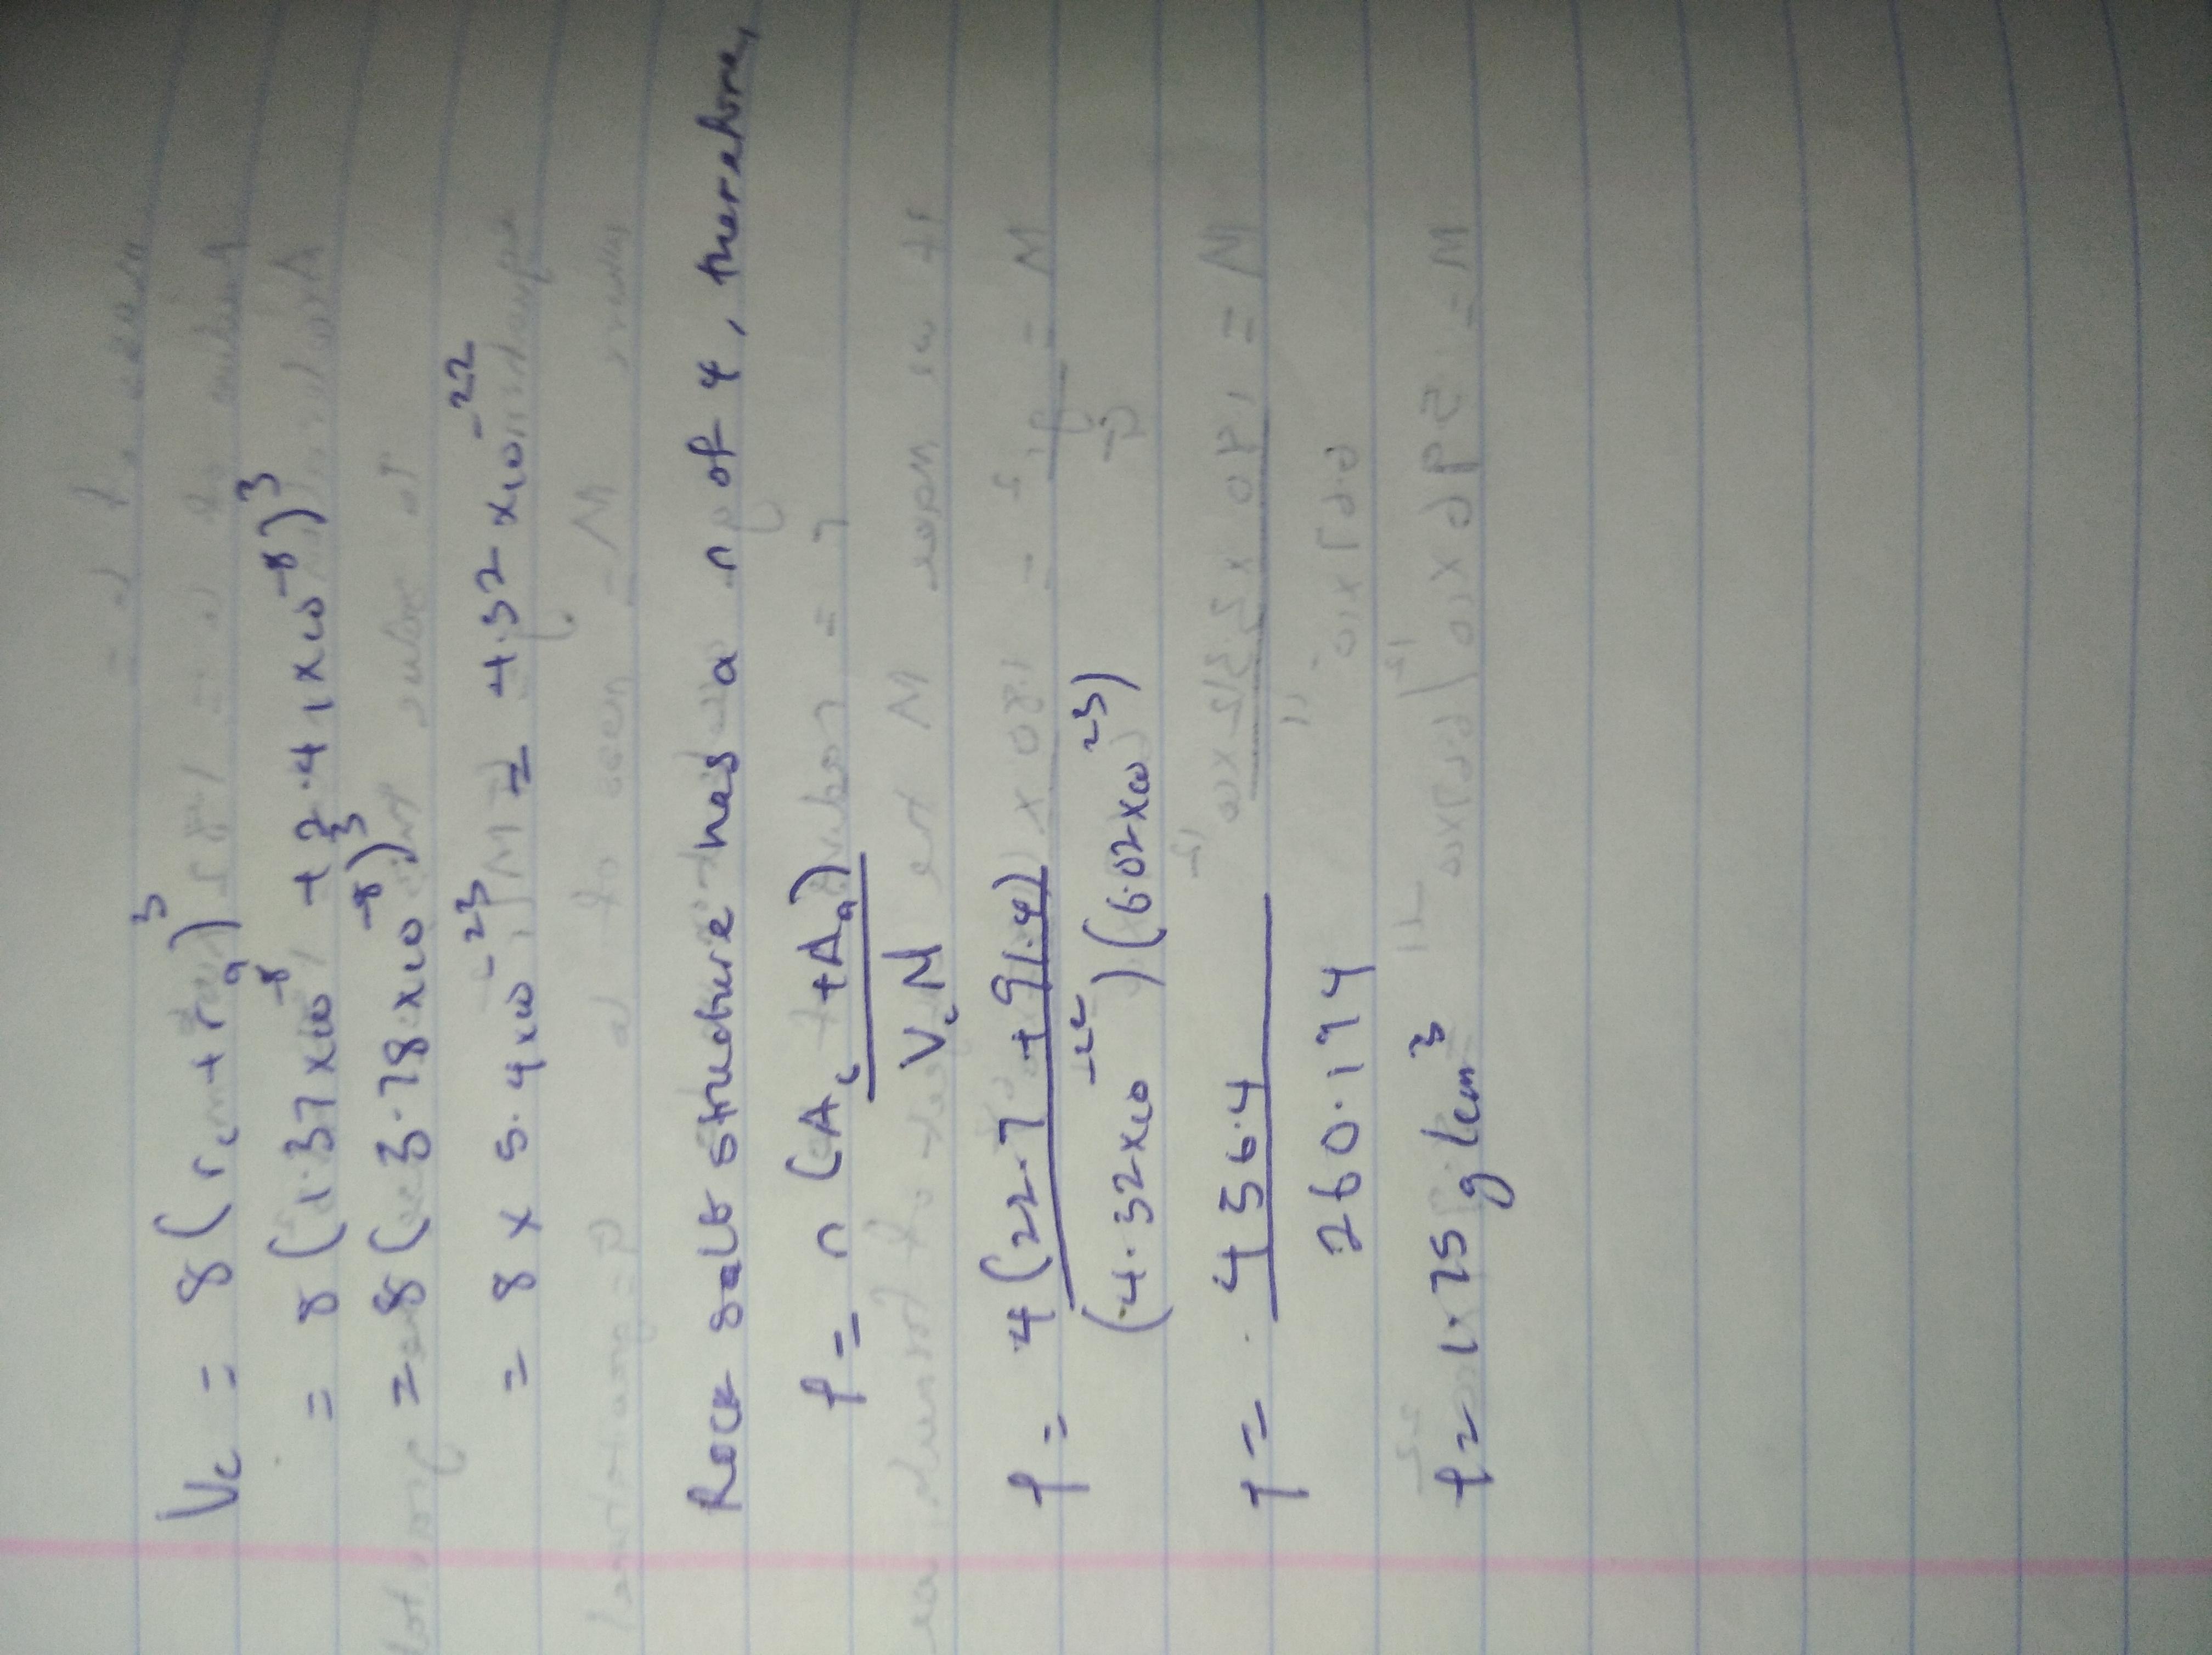 Vc = 8 (rc + ra)³
= 8 (1.37 x 10⁻⁸ + 2.41 x 10⁻⁸)³
= 8 (3.78 x 10⁻⁸)³
= 8 x 5.4 x 10⁻²³ = 4.32 x 10⁻²²
Rock salt structure has a n of 4, therefore,
ρ = n (Ac + Aa) / Vc N
ρ = 4 (22.7 + 91.4) / (4.32 x 10⁻²²) (6.02 x 10²³)
ρ = 456.4 / 260.174
ρ = 1.75 g/cm³